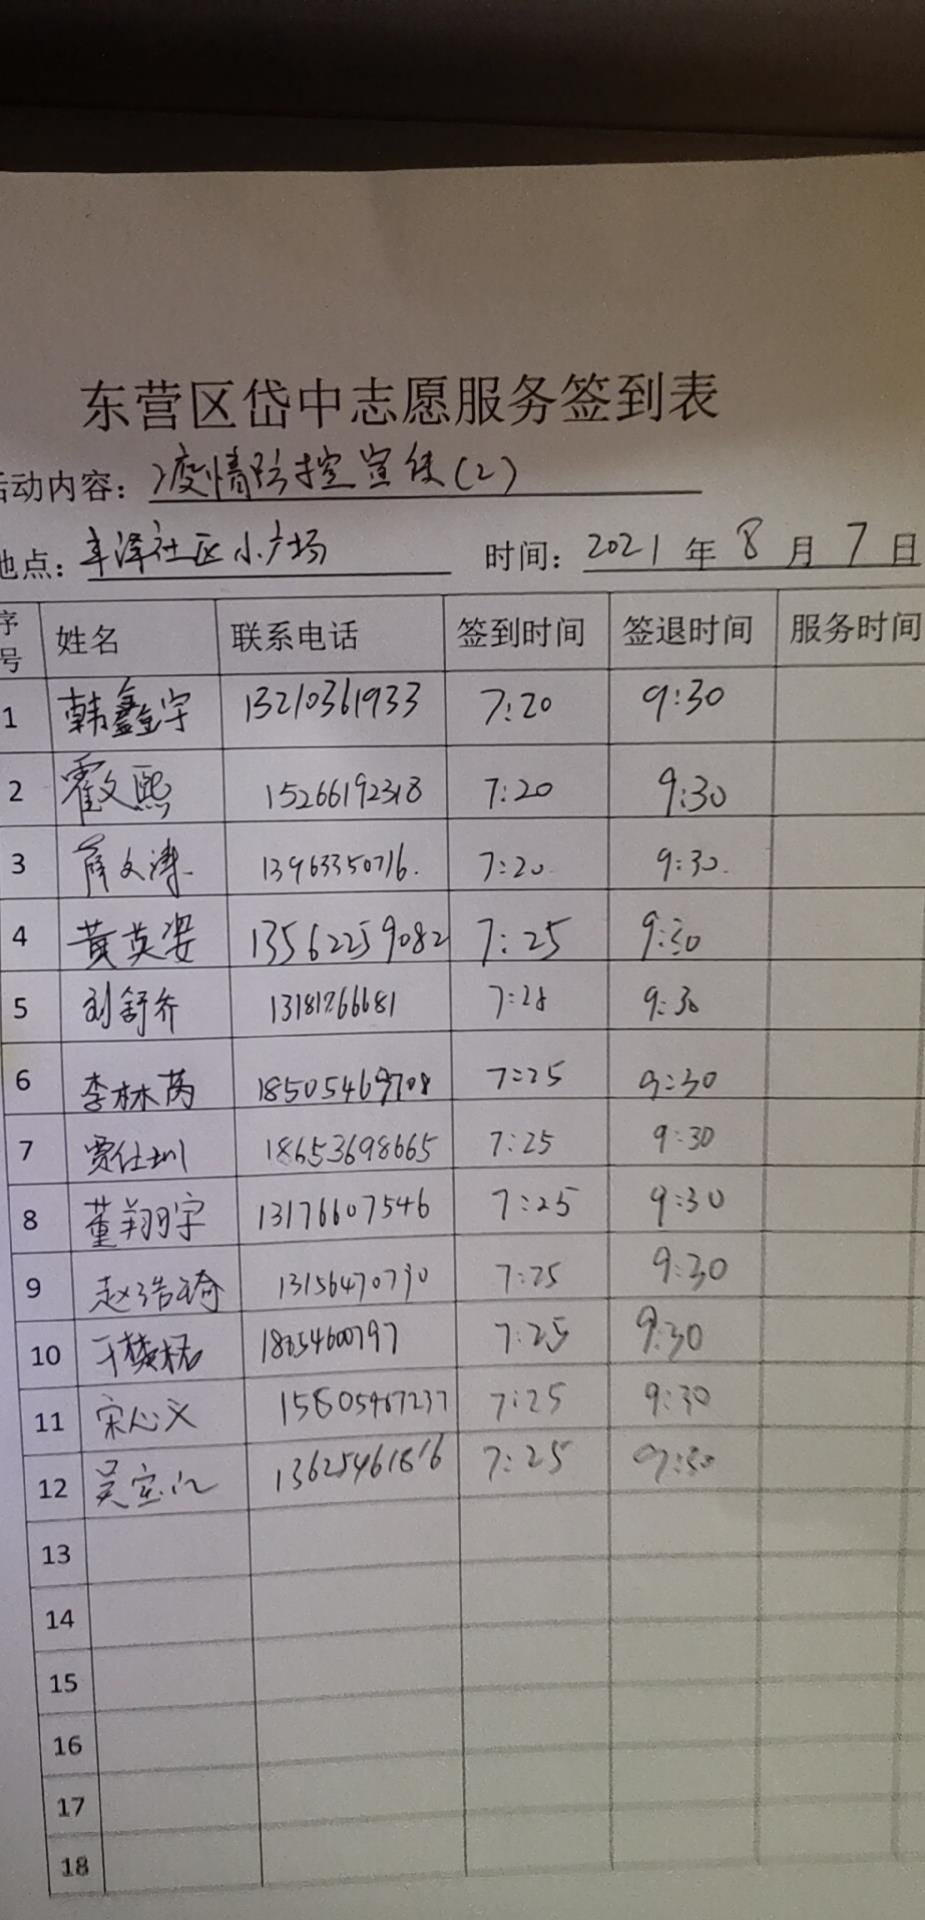 东营区岱中志愿服务签到表
活动内容：疫情防控宣传(2)
地点：丰泽社区小广场 时间：2021年8月7日
序号 姓名 联系电话 签到时间 签退时间 服务时间
1 韩鑫宇 13210361933 7:20 9:30
2 霍文熙 15266192318 7:20 9:30
3 薛文涛 13963350716. 7:20. 9:30.
4 黄英姿 13562259082 7:25 9:30
5 刘舒乔 13181766681 7:28 9:30
6 李林芮 18505469708 7:25 9:30
7 贾仕圳 18653698665 7:25 9:30
8 董翔宇 13176607546 7:25 9:30
9 赵浩琦 13156470790 7:25 9:30
10 7:25 9:30
11 宋心文 15805467237 7:25 9:30
12 吴 13625461816 7:25 9:30
13
14
15
16
17
18